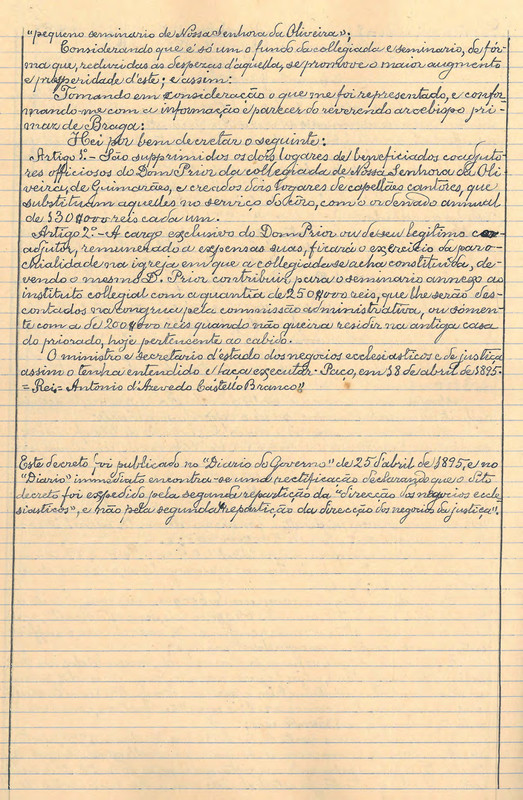 "pequeno seminario de Nossa Senhora da Oliveira";
Considerando que é só um o fundo da collegiada e seminario, de fór-
ma que, reduzidas as despezas d'aquella, se promove o maior augmento
e prosperidade d'este; e assim:
Tomando em consideração o que me foi representado, e confor-
mando-me com a informação e parecer do reverendo arcebispo pri-
maz de Braga:
Hei por bem decretar o seguinte:
Artigo 1.º - São supprimidos os dois logares de beneficiados coadjuto-
res officiosos do Dom Prior da collegiada de Nossa Senhora da Oli-
veira, de Guimarães, e creados dois logares de capellães cantores, que
substituam aquelles no serviço do côro, com o ordenado annual
de 130$000 reis cada um.
Artigo 2.º - A cargo exclusivo do Dom Prior ou de seu legitimo co-
adjutor, remunerado a expensas suas, ficará o exercicio da paro-
chialidade na igreja em que a collegiada se acha constituida, de-
vendo o mesmo D. Prior contribuir para o seminario annexo ao
instituto collegial com a quantia de 250$000 reis, que lhe serão des-
contados na congrua pela commissão administrativa, ou sómen-
te com a de 200$000 reis quando não queira residir na antiga casa
do priorado, hoje pertencente ao cabido.
O ministro e secretario d'estado dos negocios ecclesiasticos e de justiça
assim o tenha entendido e faça executar. Paço, em 18 de abril de 1895.
= Rei = Antonio d'Azevedo Castello Branco"
Este decreto foi publicado no "Diario do Governo" de 25 d'abril de 1895, e no
"Diario" immediato encontra-se uma rectificação declarando que o dito
decreto foi expedido pela segunda repartição da "direcção dos negocios eccle-
siasticos", e não pela segunda repartição da direcção dos negocios da justiça".